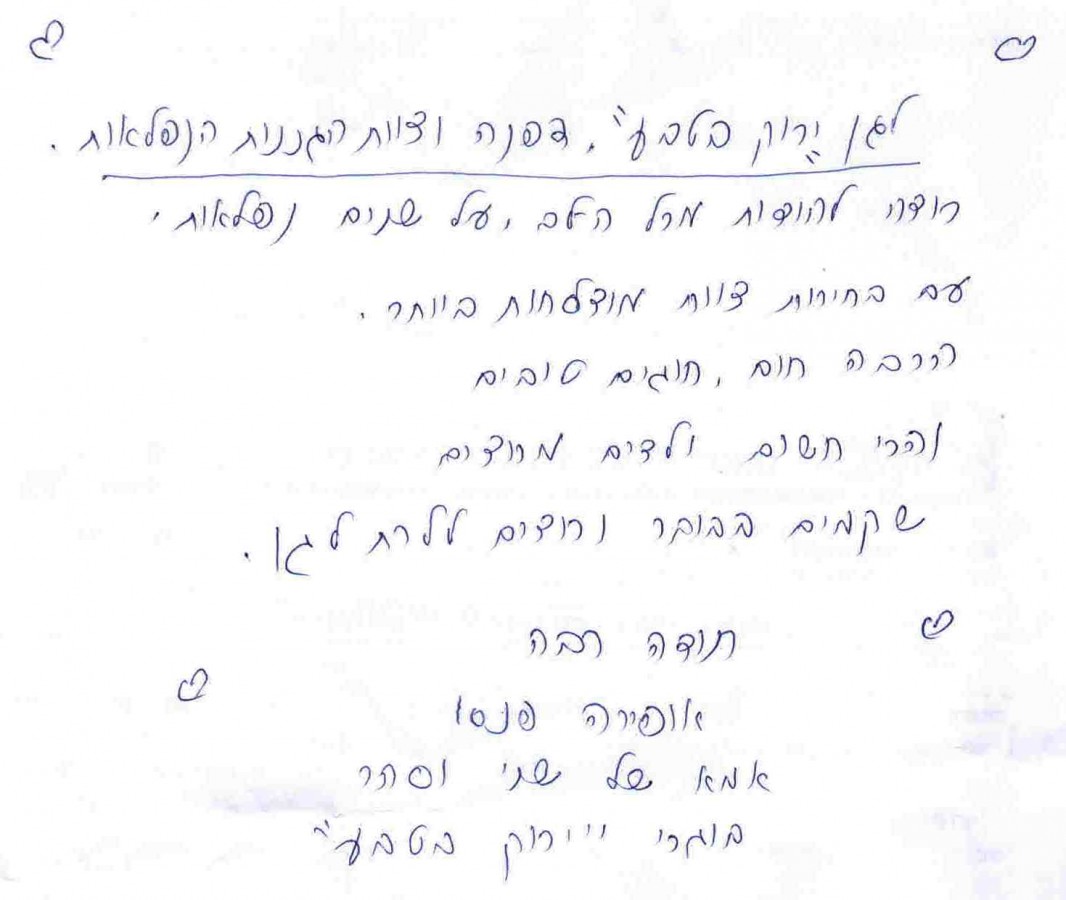 לגן "ירוק בטבע", דפנה וצוות הגננות הנפלאות.
רוצה להודות מכל הלב, על שנים נפלאות,
עם בחירות צוות מוצלחות ביותר.
הרבה חום, חוגים טובים
והכי חשוב ילדים מרוצים
שקמים בבוקר ורוצים ללכת לגן.
תודה רבה
אופירה פנסו
אמא של שני וסהר
בוגרי "ירוק בטבע"